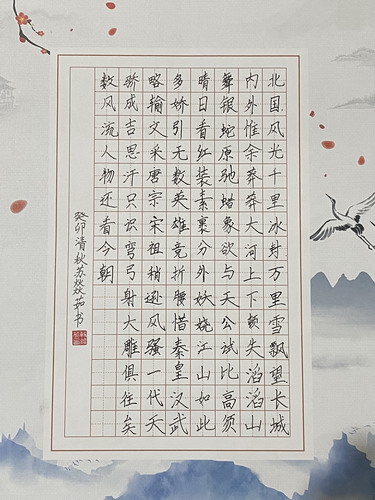 北国风光千里冰封万里雪飘望长城
内外惟余莽莽大河上下顿失滔滔山
舞银蛇原驰蜡象欲与天公试比高须
晴日看红装素裹分外妖娆江山如此
多娇引无数英雄竞折腰惜秦皇汉武
略输文采唐宗宋祖稍逊风骚一代天
骄成吉思汗只识弯弓射大雕俱往矣
数风流人物还看今朝
癸卯清秋苏燚茹书